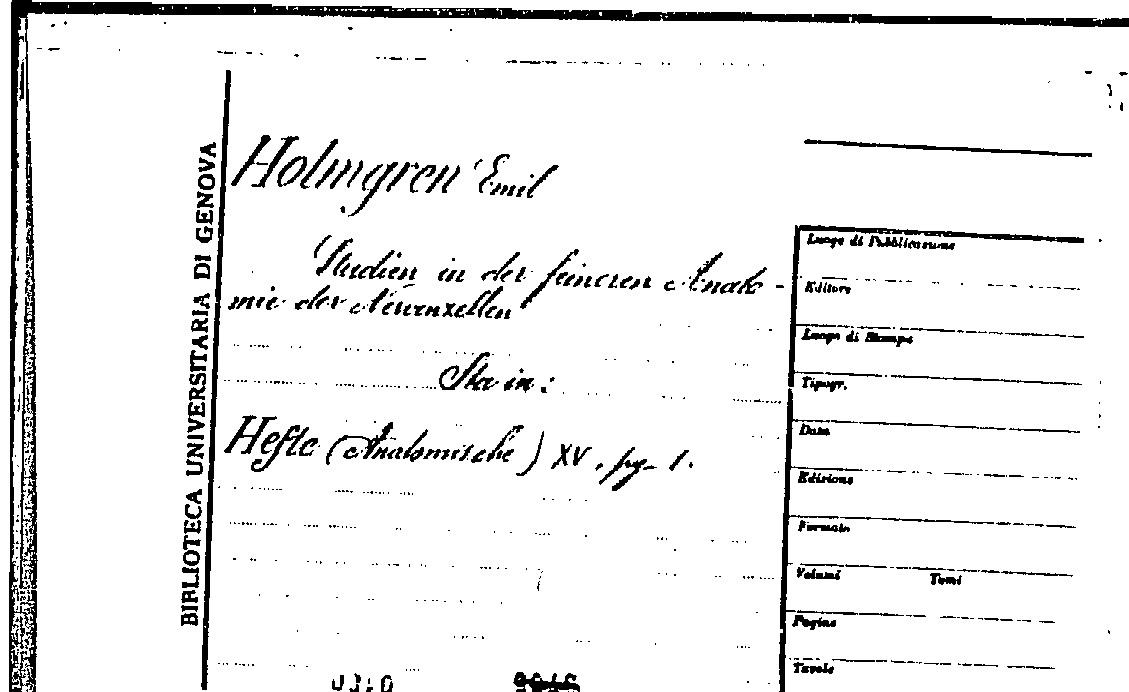 BIBLIOTECA UNIVERSITARIA DI GENOVA
Holmgren Emil
Studien in der feineren Anato-
mie der Nervenzellen
Sta in:
Hefte (Anatomische) XV, pg. 1.
Luogo di Pubblicazione
Editore
Luogo di Stampa
Tipogr.
Data
Edizione
Formato
Volumi Tomi
Pagine
Tavole